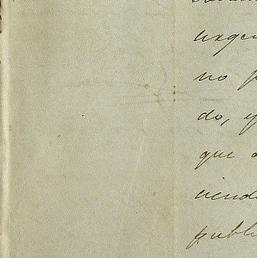 urgen
no p
do, y
que a
ciend
publi